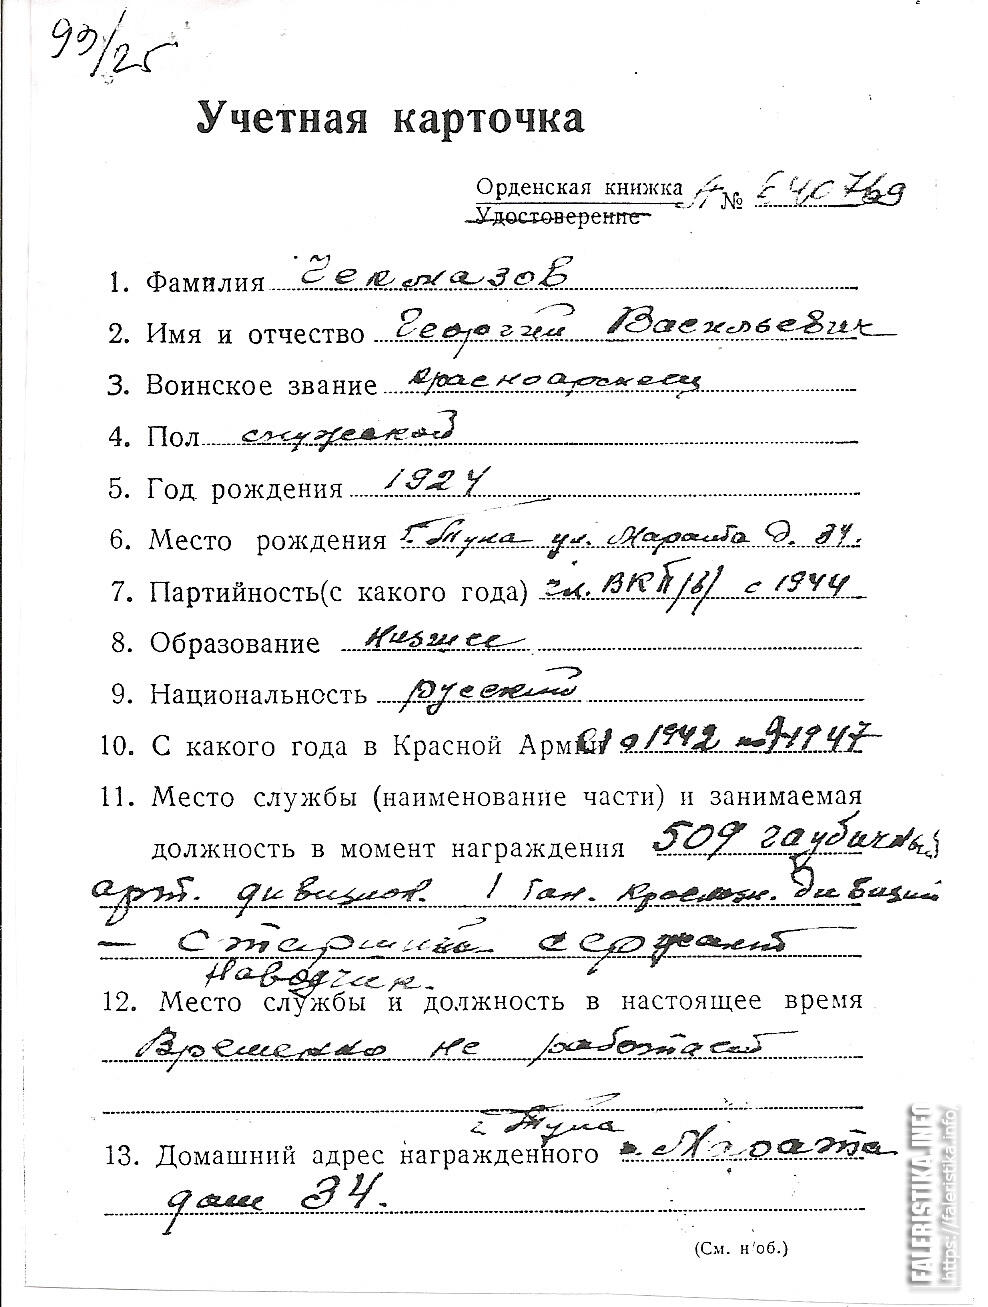 93/25
Учетная карточка
Орденская книжка А № 640769
Удостоверение
1. Фамилия Чекмазов
2. Имя и отчество Георгий Васильевич
3. Воинское звание красноармеец
4. Пол мужской
5. Год рождения 1924
6. Место рождения г. Тула ул. Марата д. 34.
7. Партийность(с какого года) чл. ВКП/б/ с 1944
8. Образование низшее
9. Национальность русский
10. С какого года в Красной Армии с 1942 по 1947
11. Место службы (наименование части) и занимаемая
должность в момент награждения 509 гаубичный
арт. дивизион. 1 Тан. Краснозн. дивизии
— Старший сержант
наводчик.
12. Место службы и должность в настоящее время
Временно не работает
г. Тула
13. Домашний адрес награжденного Марата
дом 34.
(См. н/об.)
FALERISTIKA.INFO
https://faleristika.info